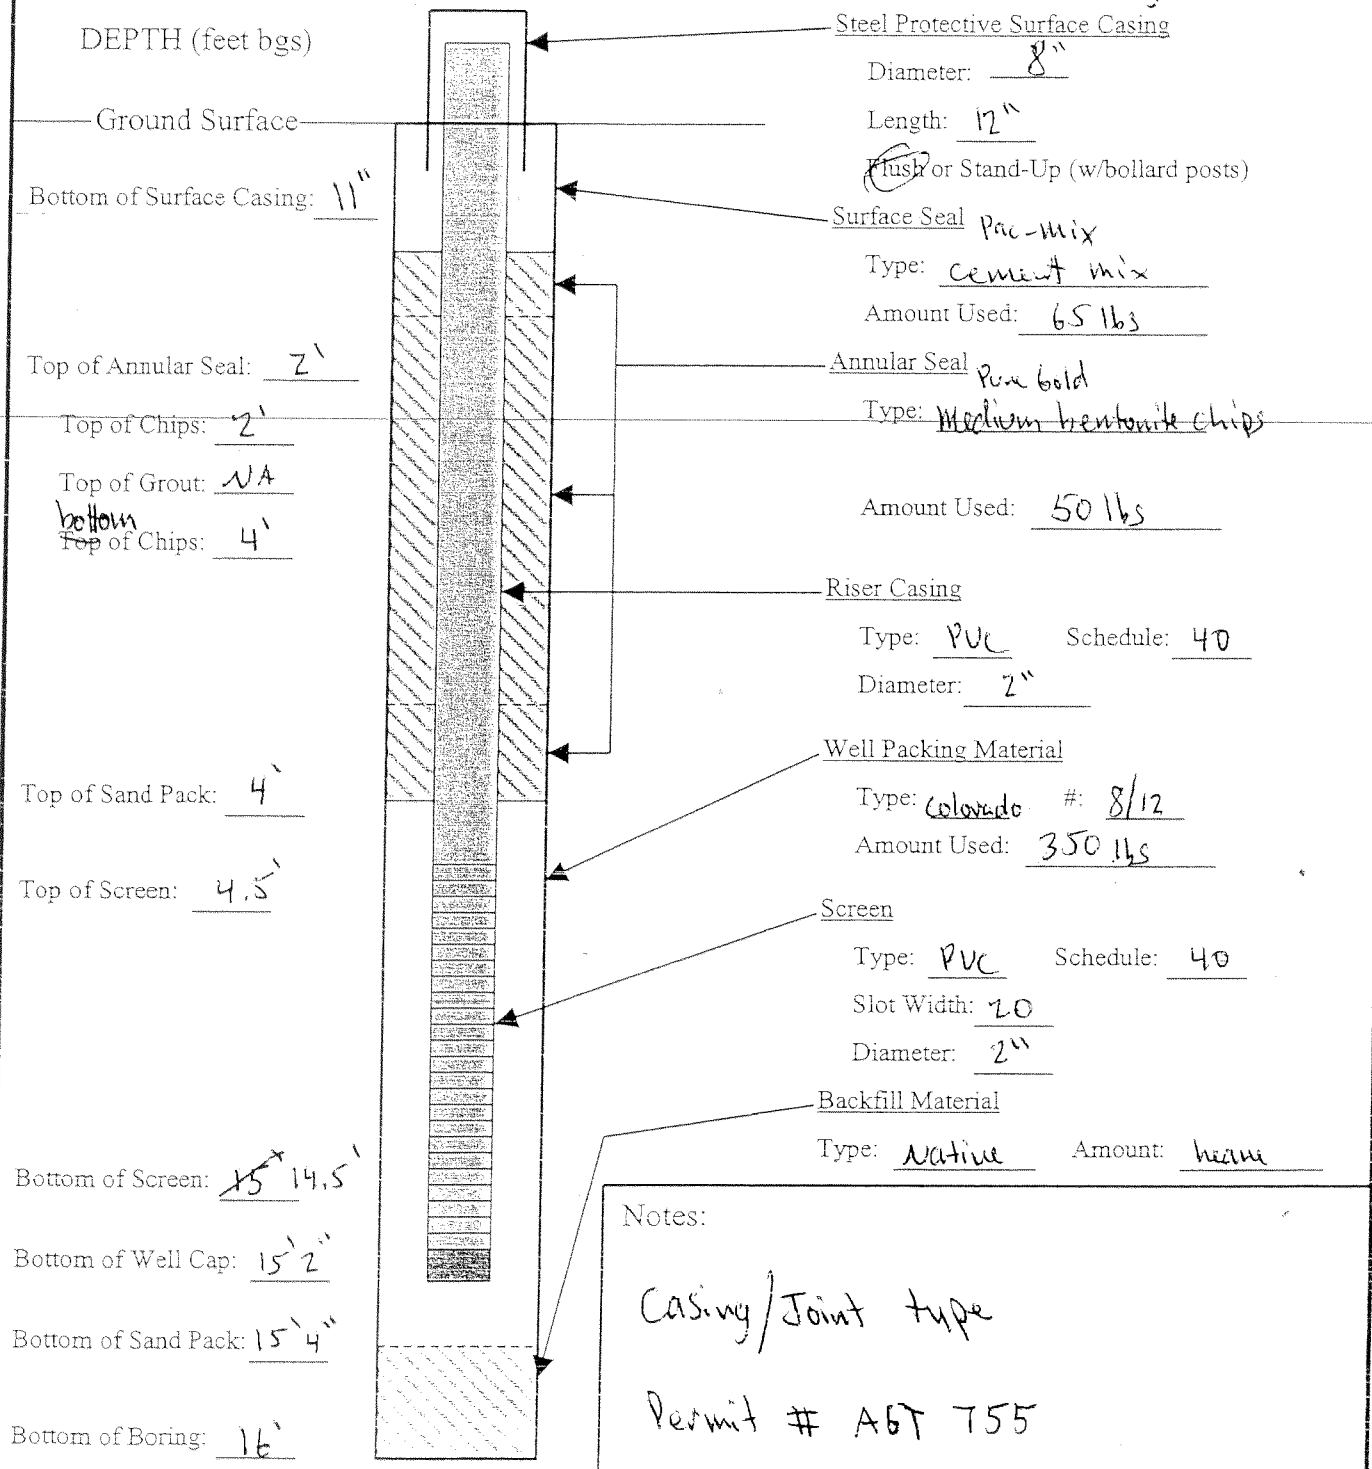 DEPTH (feet bgs)
Ground Surface
Bottom of Surface Casing: 11"
Top of Annular Seal: 2'
Top of Chips: 2'
Top of Grout: NA
bottom
Top of Chips: 4'
Top of Sand Pack: 4'
Top of Screen: 4.5'
Bottom of Screen: 15' 14.5'
Bottom of Well Cap: 15' 2"
Bottom of Sand Pack: 15' 4"
Bottom of Boring: 16'
Steel Protective Surface Casing
Diameter: 8"
Length: 12"
Flush or Stand-Up (w/bollard posts)
Surface Seal Pac-mix
Type: cement mix
Amount Used: 65 lbs
Annular Seal Pure Gold
Type: Medium bentonite chips
Amount Used: 50 lbs
Riser Casing
Type: PVC Schedule: 40
Diameter: 2"
Well Packing Material
Type: Colorado #: 8/12
Amount Used: 350 lbs
Screen
Type: PVC Schedule: 40
Slot Width: 20
Diameter: 2"
Backfill Material
Type: Native Amount:
Notes:
Casing/Joint type
Permit # AGT 755